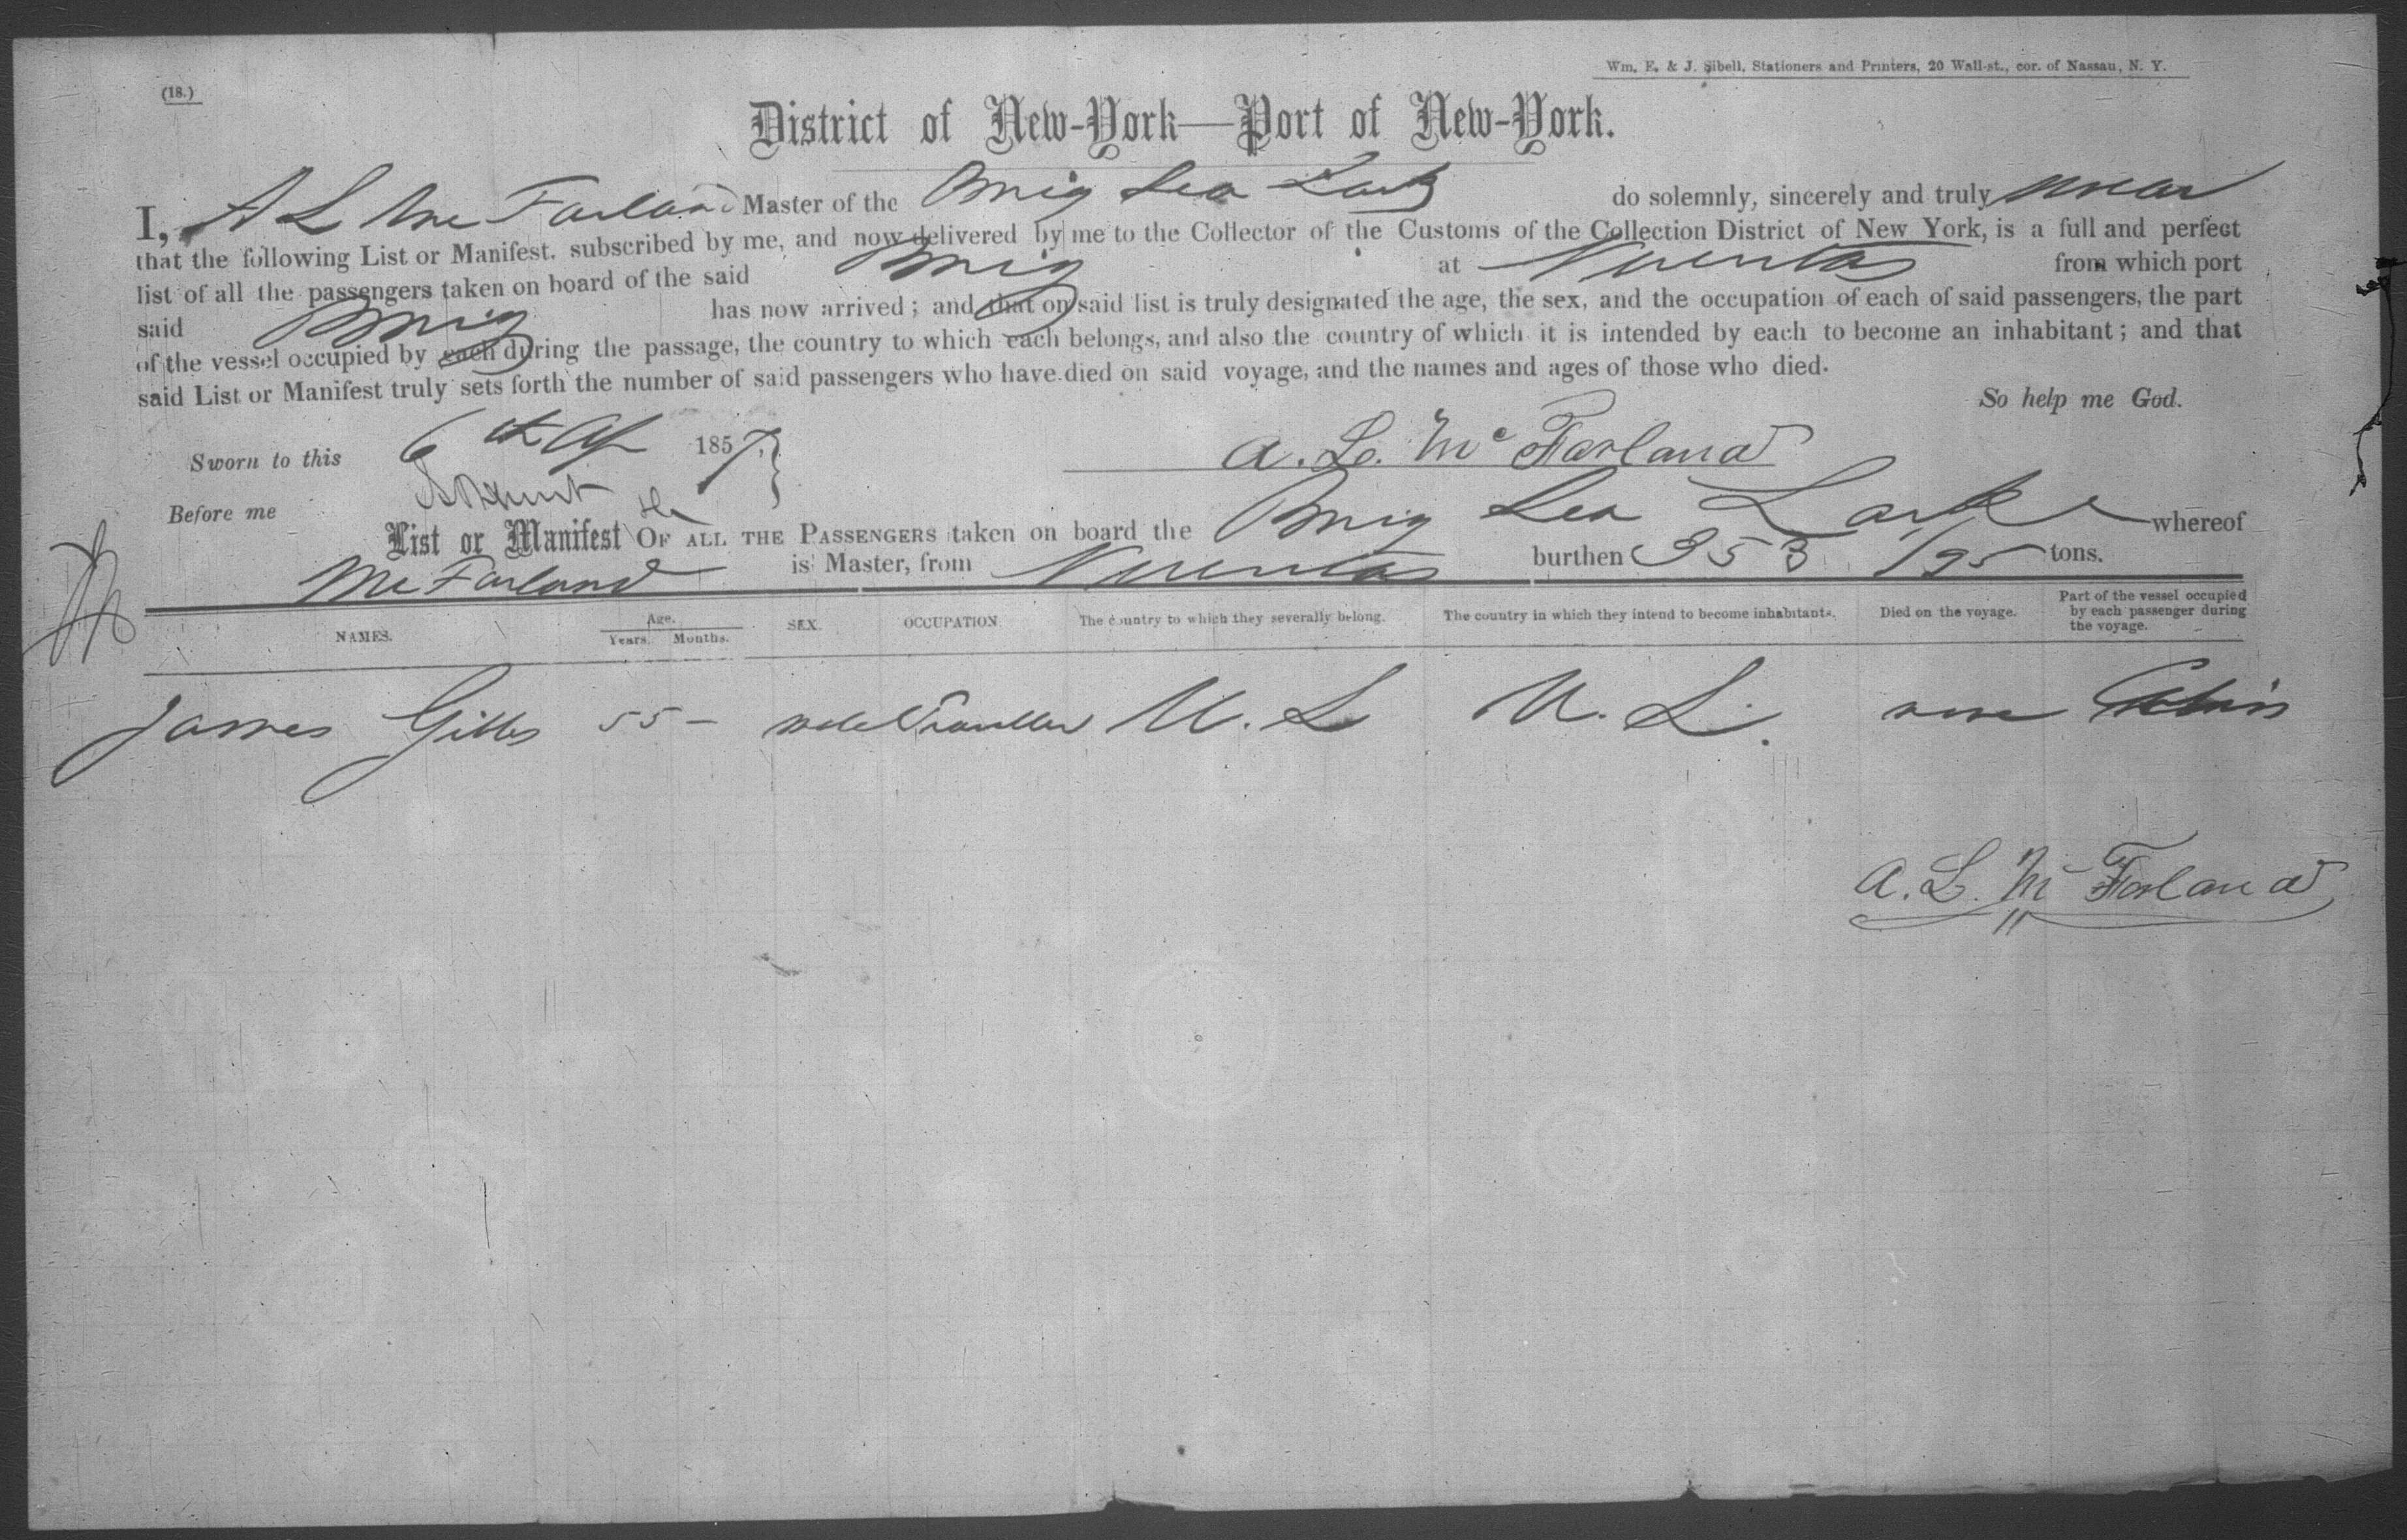 (18.)
Wm. E. & J. Sibell, Stationers and Printers, 20 Wall-st., cor. of Nassau, N. Y.
District of New-York—Port of New-York.
I, A L Mc Farland Master of the Brig Sea Lark do solemnly, sincerely and truly swear
that the following List or Manifest, subscribed by me, and now delivered by me to the Collector of the Customs of the Collection District of New York, is a full and perfect
list of all the passengers taken on board of the said Brig at Nuevitas from which port
said Brig has now arrived; and that on said list is truly designated the age, the sex, and the occupation of each of said passengers, the part
of the vessel occupied by each during the passage, the country to which each belongs, and also the country of which it is intended by each to become an inhabitant; and that
said List or Manifest truly sets forth the number of said passengers who have died on said voyage, and the names and ages of those who died.
So help me God.
Sworn to this 6th Ap 1857. A. L. Mc Farland
Before me
List or Manifest OF ALL THE PASSENGERS taken on board the Brig Sea Lark whereof
Mc Farland is Master, from Nuevitas burthen 353 /95 tons.
NAMES. Age. Years. Months. SEX. OCCUPATION. The country to which they severally belong. The country in which they intend to become inhabitants. Died on the voyage. Part of the vessel occupied by each passenger during the voyage.
James Gibbs 55 — male Traveller U. S U. S. none Cabin
A. L. Mc Farland